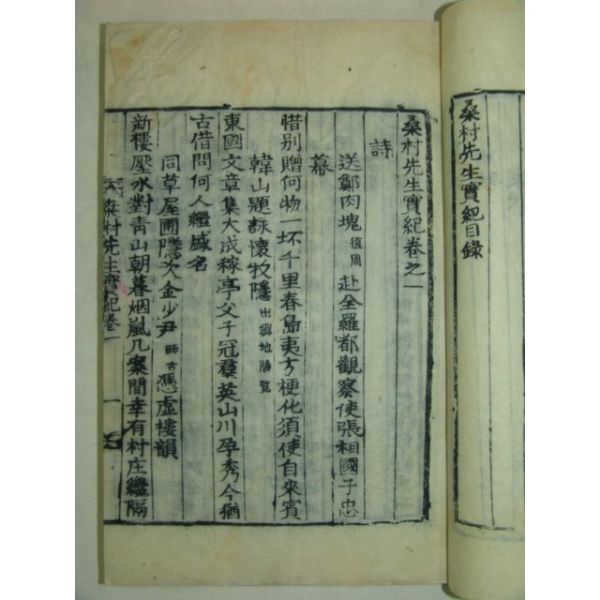 桑村先生實紀目錄
桑村先生實紀卷之一
詩
送鄭肉塊復周赴全羅都觀察使張相國子忠
幕
惜別贈何物一坏千里春島夷方梗化須使自來賓
韓山題詠懷牧隱出輿地勝覽
東國文章集大成稼亭父子冠羣英山川孕秀今猶
古借問何人繼盛名
同草屋圃隱次金少尹師古憑虛樓韻
新樓壓水對靑山朝暮烟嵐几案間幸有村庄纔隔
桑村先生實紀卷一
一